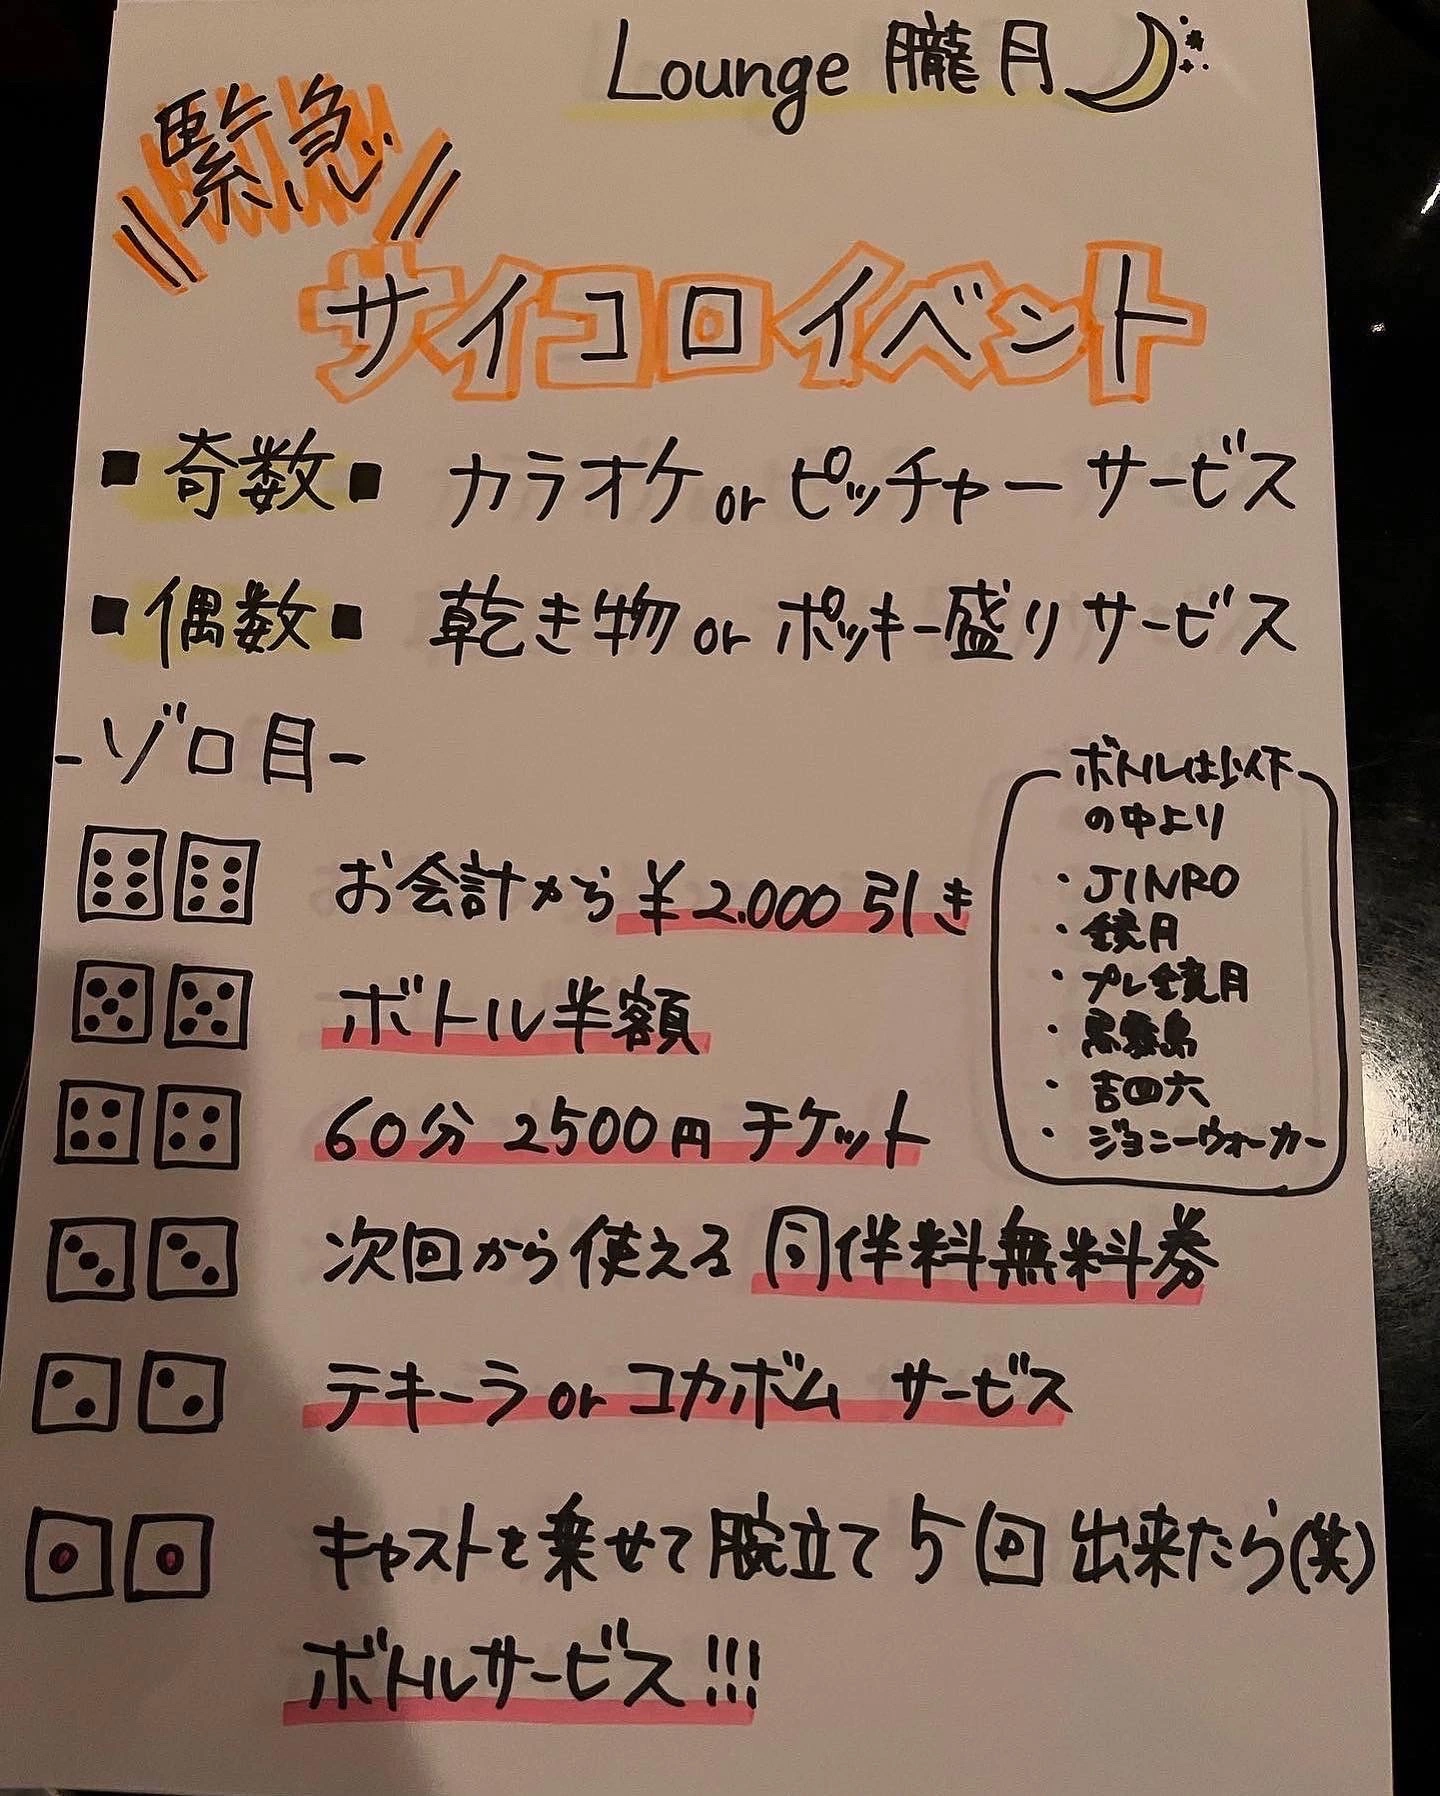 Lounge 朧月
緊急
サイコロイベント
■奇数■ カラオケ or ピッチャーサービス
■偶数■ 乾き物 or ポッキー盛りサービス
-ゾロ目-
お会計から ¥2.000引き
ボトル半額
60分 2500円 チケット
次回から使える 同伴料無料券
テキーラ or コカボム サービス
キャストを乗せて腕立て5回出来たら(笑)
ボトルサービス!!!
ボトルは以下
の中より
・JINRO
・鏡月
・プレ鏡月
・黒霧島
・吉四六
・ジョニーウォーカー